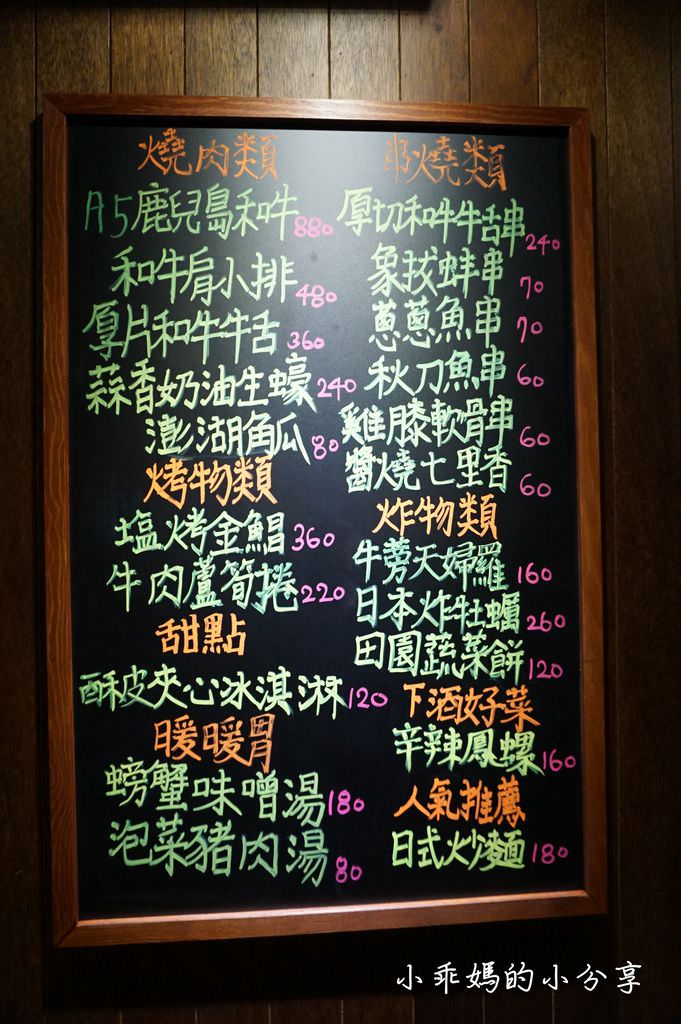 燒肉類
A5鹿兒島和牛880
和牛肩小排480
厚片和牛牛舌360
蒜香奶油生蠔240
澎湖角瓜80
烤物類
塩烤金鯧360
牛肉蘆筍捲220
甜點
酥皮夾心冰淇淋120
暖暖胃
螃蟹味噌湯180
泡菜豬肉湯80
串燒類
厚切和牛牛舌串240
象拔蚌串70
蔥蔥魚串70
秋刀魚串60
雞膝軟骨串60
醬燒七里香60
炸物類
牛蒡天婦羅160
日本炸牡蠣260
田園蔬菜餅120
下酒好菜
辛辣鳳螺160
人氣推薦
日式炒麵180
小乖媽的小分享